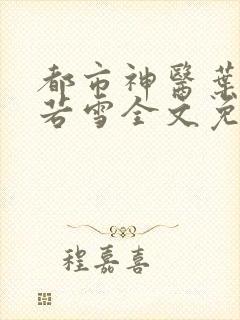 都市神醫葉
若雪全文免
程嘉喜